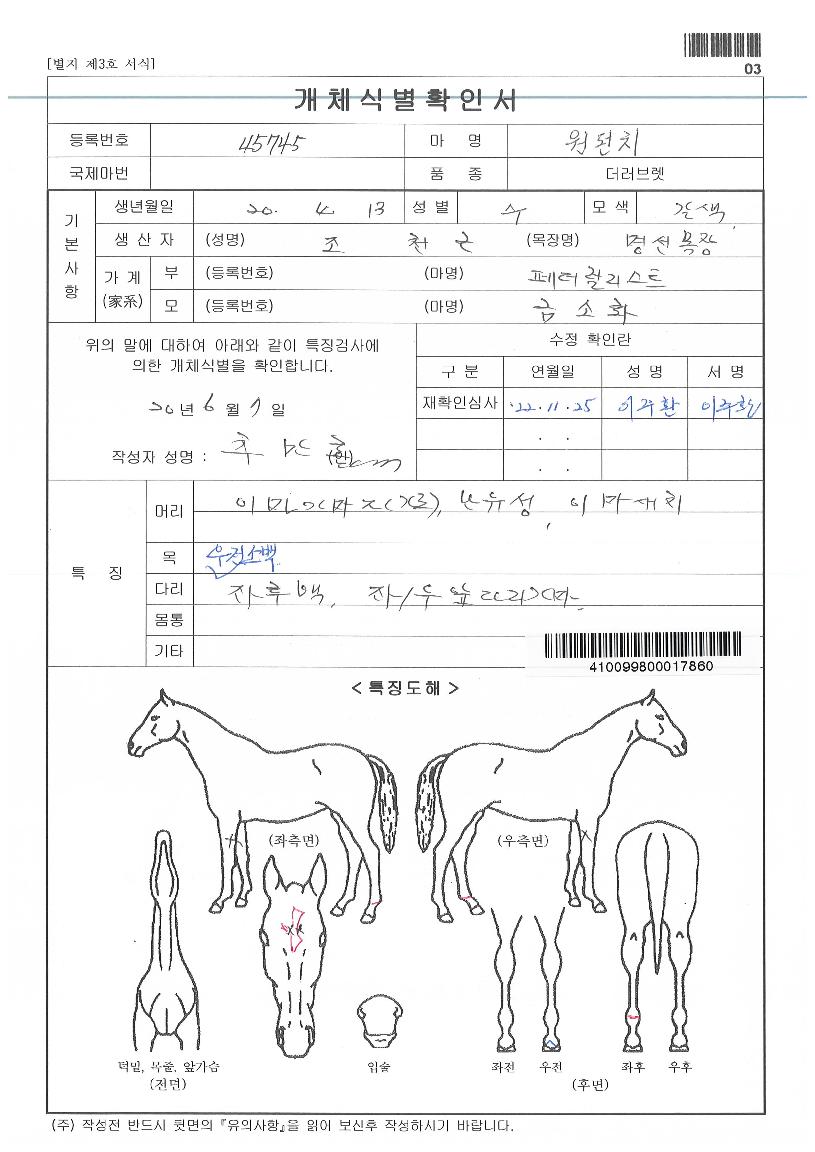 [별지 제3호 서식]
03
개체식별확인서
등록번호 45745 마 명 원던치
국제마번 품 종 더러브렛
기본사항
생년월일 20. 4. 13 성 별 수 모 색 갈색
생 산 자 (성명) 조 천 근 (목장명) 명선목장
가 계 (家系) 부 (등록번호) (마명) 페더럴리스트
모 (등록번호) (마명) 금소화
위의 말에 대하여 아래와 같이 특징검사에
의한 개체식별을 확인합니다.
20년 6 월 9 일
작성자 성명 : (인)
수정 확인란
구 분 연월일 성 명 서 명
재확인심사 '22.11.25 이주환 이주환
특 징
머리
목 우전소백
다리 좌후백, 좌/우앞다리가마
몸통
기타
410099800017860
< 특징도해 >
(좌측면) (우측면)
턱밑, 목줄, 앞가슴
(전면)
입술
좌전 우전 좌후 우후
(후면)
(주) 작성전 반드시 뒷면의 『유의사항』을 읽어 보신후 작성하시기 바랍니다.